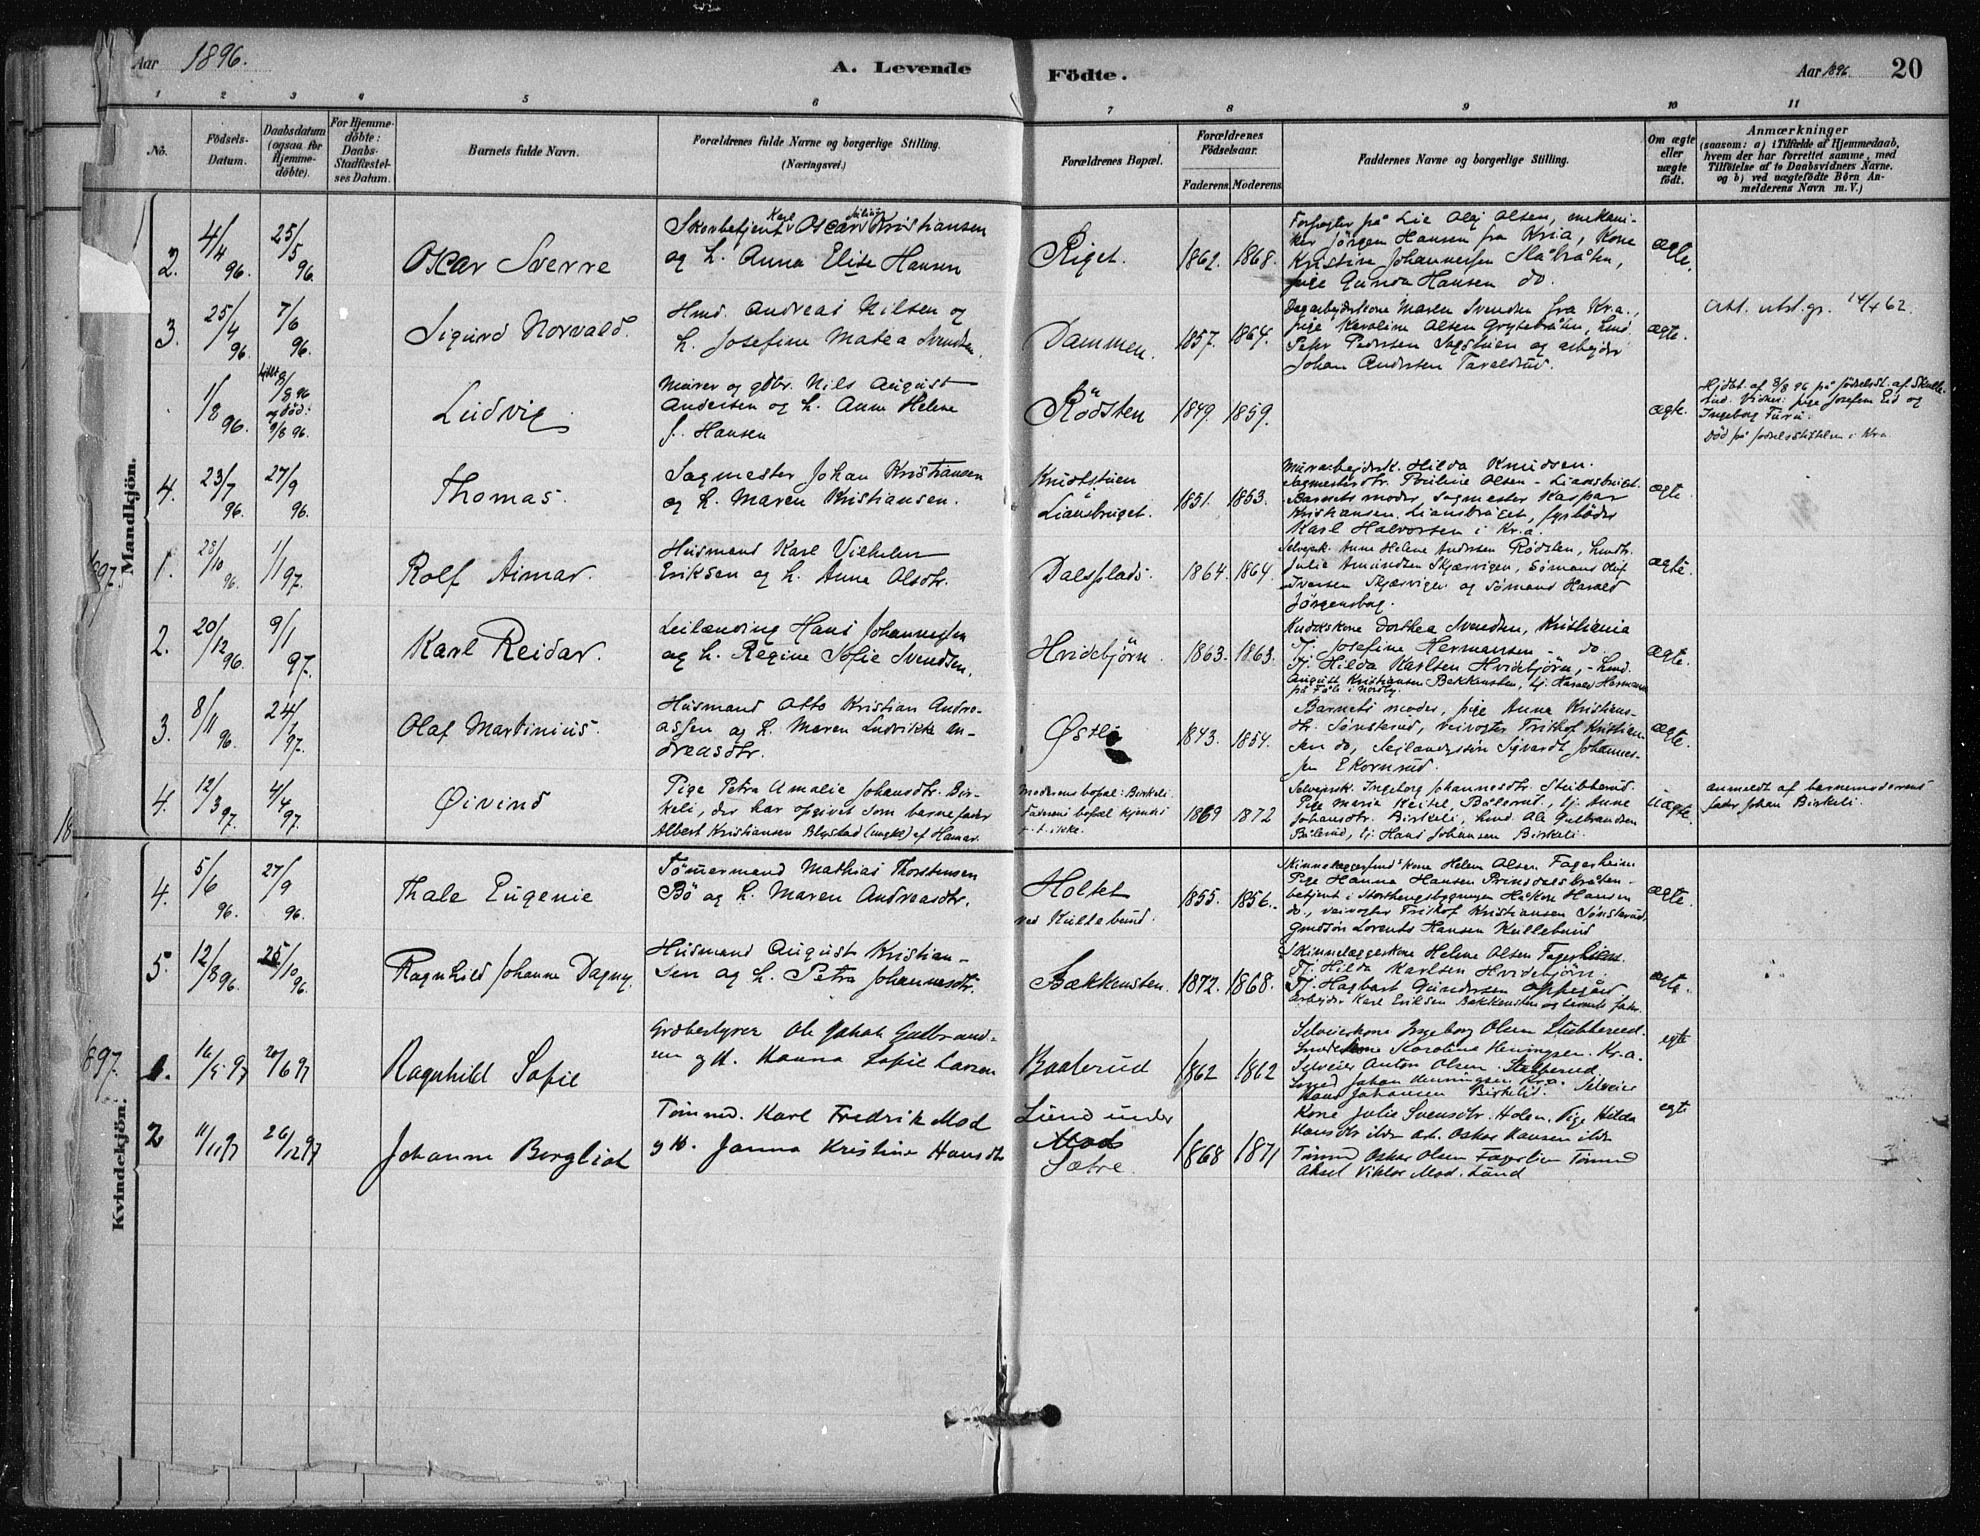 Aar 1896.
A. Levende
Födte.
Aar 1896.
20
1 2 3 4 5 6 7 8 9 10 11
No.
Födsels-Datum.
Daabsdatum (ogsaa for Hjemme-döbte).
For Hjemme-döbte: Daabs-Stadfæstel-ses Datum.
Barnets fulde Navn.
Forældrenes fulde Navne og borgerlige Stilling. (Næringsvei.)
Forældrenes Bopæl.
Forældrenes Födselsaar.
Faderens. Moderens.
Faddernes Navne og borgerlige Stilling.
Om ægte eller uægte födt.
Anmærkninger
(saasom: a) i Tilfælde af Hjemmedaab,
hvem der har forrettet samme, med
Tilföielse af to Daabsvidners Navne,
og b) ved uægtefödte Börn An-
melderens Navn m. V.)
Mandkjön.
2. 4/4 96. 25/5 96. Oscar Sverre
Karl Julius
Skovbetjent Oscar Kristiansen
og h. Anna Elise Hansen
Riget. 1862. 1868.
Forpagter på Lie Olaf Olsen, mekani-
ker Jörgen Hansen fra Kria, Kone
Kristine Johannessen Slåbråten,
pige Gunda Hansen do.
ægte.
3. 25/4 96. 7/6 96. Sigurd Norvald.
Hmd. Andreas Nilsen og
h. Josefine Matea Svendsen.
Dammen. 1857. 1864.
Dagarbejderkone Maren Svendsen fra Kra.,
pige Karoline Olsen Grytebråten, hmd.
Peter Pedersen Sagstuen og arbejder
Johan Andersen Taraldrud.
ægte.
Att. utst. gr. 14/4 62.
1/8 96. 8/8 96 og död: 9/8 96. Ludvig
Murer og gdbr. Nils August
Andersen og h. Anne Helene
f. Hansen
Rödsten 1849. 1859.
ægte.
Hjdbt. af 8/8 96 på födselsst. af
Vidner: pige Josefine Lid og
Ingeborg Furu.
Död på födselsstiftelsen i Kra
4. 23/7 96. 27/9 96. Thomas.
Sagmester Johan Kristiansen
og h. Maren Kristiansen.
Knudstuen
Liansbruget. 1851. 1853.
Murarbejdersk. Hilda Knudsen.
Sagmesterdtr. Pauline Olsen - Liansbruget.
Barnets moder, sagmester Kaspar
Kristiansen, Liansbruget, fyrböder
Karl Halvorsen i Kra.
ægte.
1897.
1. 28/10 96. 1/1 97. Rolf Aimar.
Husmand Karl Vilhelm
Eriksen og h. Anna Olsdtr.
Dalsplads. 1864. 1864.
Selvejersk. Anne Helene Andersen Rödsten, hmdtr.
Julie Amundsen Skjærvigen, Sömand
Iversen Skjærvigen og Sömand Harald
Jörgensbog.
ægte.
2. 20/12 96. 9/1 97. Karl Reidar.
Leilænding Hans Johannessen
og h. Regine Sofie Svendsen.
Hvidebjörn. 1863. 1863.
Kudskkone Dorthea Svendsen, Kristiania
Tj. Josefine Hermansen - do.
Tj. Hilda Karlsen Hvidebjörn, - hmd.
August Kristiansen Bekkensten, tj. Harald Herman
ægte.
3. 8/11 96. 24/1 97. Olaf Martinius.
Husmand Otto Kristian Andre-
assen og h. Maren Ludvikke An-
dreasdtr.
Østli 1843. 1854.
Barnets moder, pige Anna Kristians-
dtr. Sönsterud, veivogter Frithof Kristian-
sen do, Johannes-
sen Ekornrud.
ægte.
4. 12/3 97. 4/4 97. Øivind
Pige Petra Amalie Johansdtr. Bir-
keli, der har opgivet som barnefader
Albert Kristiansen Blystad (ungk.) af Hamar.
Moderens bopæl: Birkeli.
Faderens bopæl kjendes
ikke. 1869 1872
Selvejersk. Ingeborg Johannesdtr. Stubberud.
Pige Maria Keitel, Bålerud, tj. Anne
Johansdtr. Birkeli, hmd. Ole Gulbrandsen
Bålerud, tj. Hans Johansen Birkeli.
Uægte.
anmeldt af barnemoderens
fader Johan Birkeli.
Kvindekjön.
4. 5/6 96. 27/9 96. Thale Eugenie
Tömmermand Mathias Thorstensen
Bö og h. Maren Andreasdtr.
Holtet
ved Kullebund. 1855. 1856.
Kone Helene Olsen Fagerheim
Pige Hanna Hansen Prinsdalsbråten -
betjent i Storthingsbygningen Håkon Hansen
do., veivogter Frithof Kristiansen Sönsterud,
gmdsön Lorents Hansen Kullebund
ægte.
5. 12/8 96. 25/10 96. Ragnhild Johanne Dagny.
Husmand August Kristian-
sen og h. Petra Johannesdtr.
Bækkensten. 1872. 1868.
Skinnelæggerkone Helene Olsen Fagerheim.
Tj. Hilda Karlsen Hvidebjörn.
Tj. Hagbart Gundersen Oppegård
Arbejder Karl Eriksen Bekkensten og barnets fader.
ægte.
1897.
1. 16/5 97 20/6 97 Ragnhild Sofie
Gröbestyrer Ole Johan Gulbrand-
sen og h. Hanna Sofie Larsen
Baalerud 1862 1862
Selveierkone Ingeborg Olsen Stubberud.
Smedekone Karoline Henningsen. Kr.a.
Selveier Anton Olsen. Stubberud
Smed Johan Henningsen Kra. Selveier
Hans Johansen Birkelid.
egte
2 11/11 97 26/12 97 Johanne Bergliot
Tömmd. Karl Fredrik Mod
og h. Janna Kristine Hansdtr
Lund under
Sætre. 1868 1871
Kone Julie Svensdtr. Holen. Pige Hilda
Hansdtr ildn arb. Oskar Hansen ildn
Tömmd Oskar Olsen Fagerlien Tömmd
Aksel Viktor Mod. Lund
egte